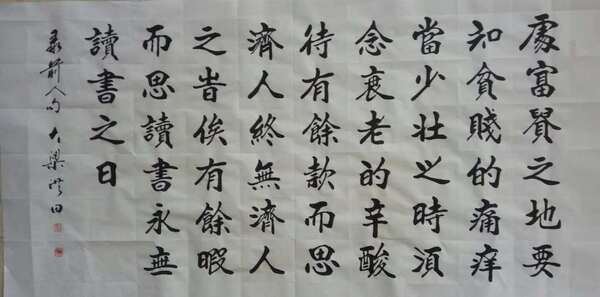 處富貴之地要
知貧賤的痛痒
當少壯之時須
念衰老的辛酸
待有餘款而思
濟人終無濟人
之時俟有餘暇
而思讀書永無
讀書之日
录前人句 大梁